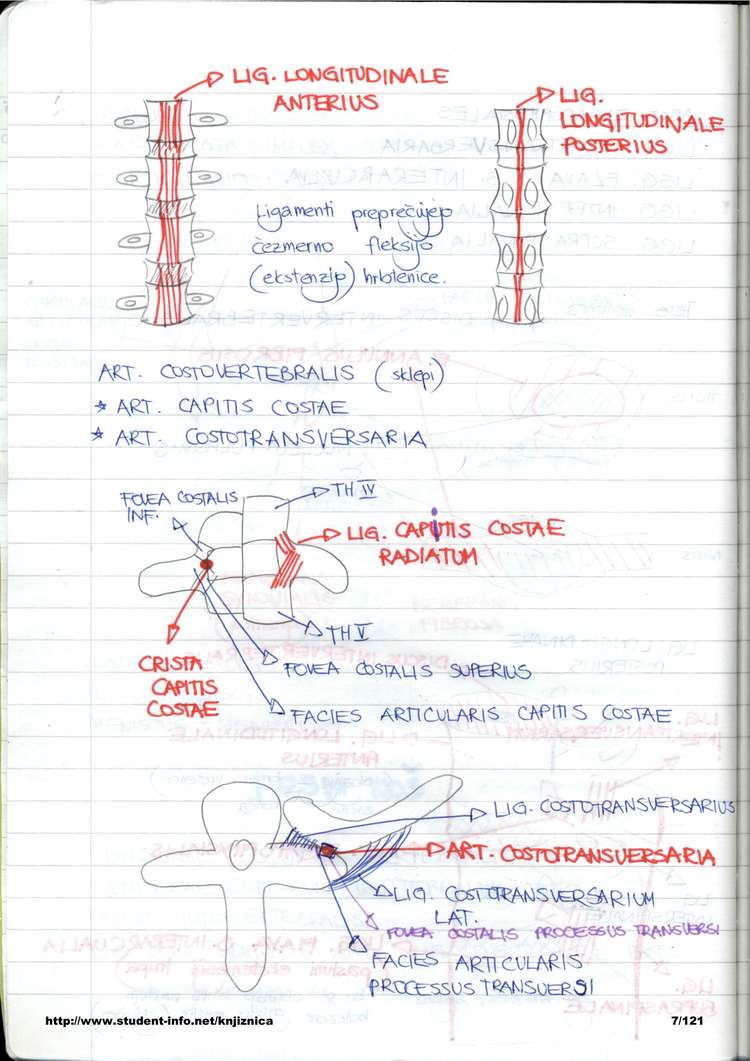 LIG. LONGITUDINALE
ANTERIUS
LIG.
LONGITUDINALE
POSTERIUS
Ligamenti preprečujejo
čezmerno fleksijo
(ekstenzijo) hrbtenice.
ART. COSTOVERTEBRALIS (sklepi)
* ART. CAPITIS COSTAE
* ART. COSTOTRANSVERSARIA
FOVEA COSTALIS
INF.
TH IV
LIG. CAPITIS COSTAE
RADIATUM
TH V
CRISTA
CAPITIS
COSTAE
FOVEA COSTALIS SUPERIUS
FACIES ARTICULARIS CAPITIS COSTAE
LIG. COSTOTRANSVERSARIUS
ART. COSTOTRANSVERSARIA
LIG. COSTOTRANSVERSARIUM
LAT.
FOVEA COSTALIS PROCESSUS TRANSVERSI
FACIES ARTICULARIS
PROCESSUS TRANSVERSI
http://www.student-info.net/knjiznica
7/121